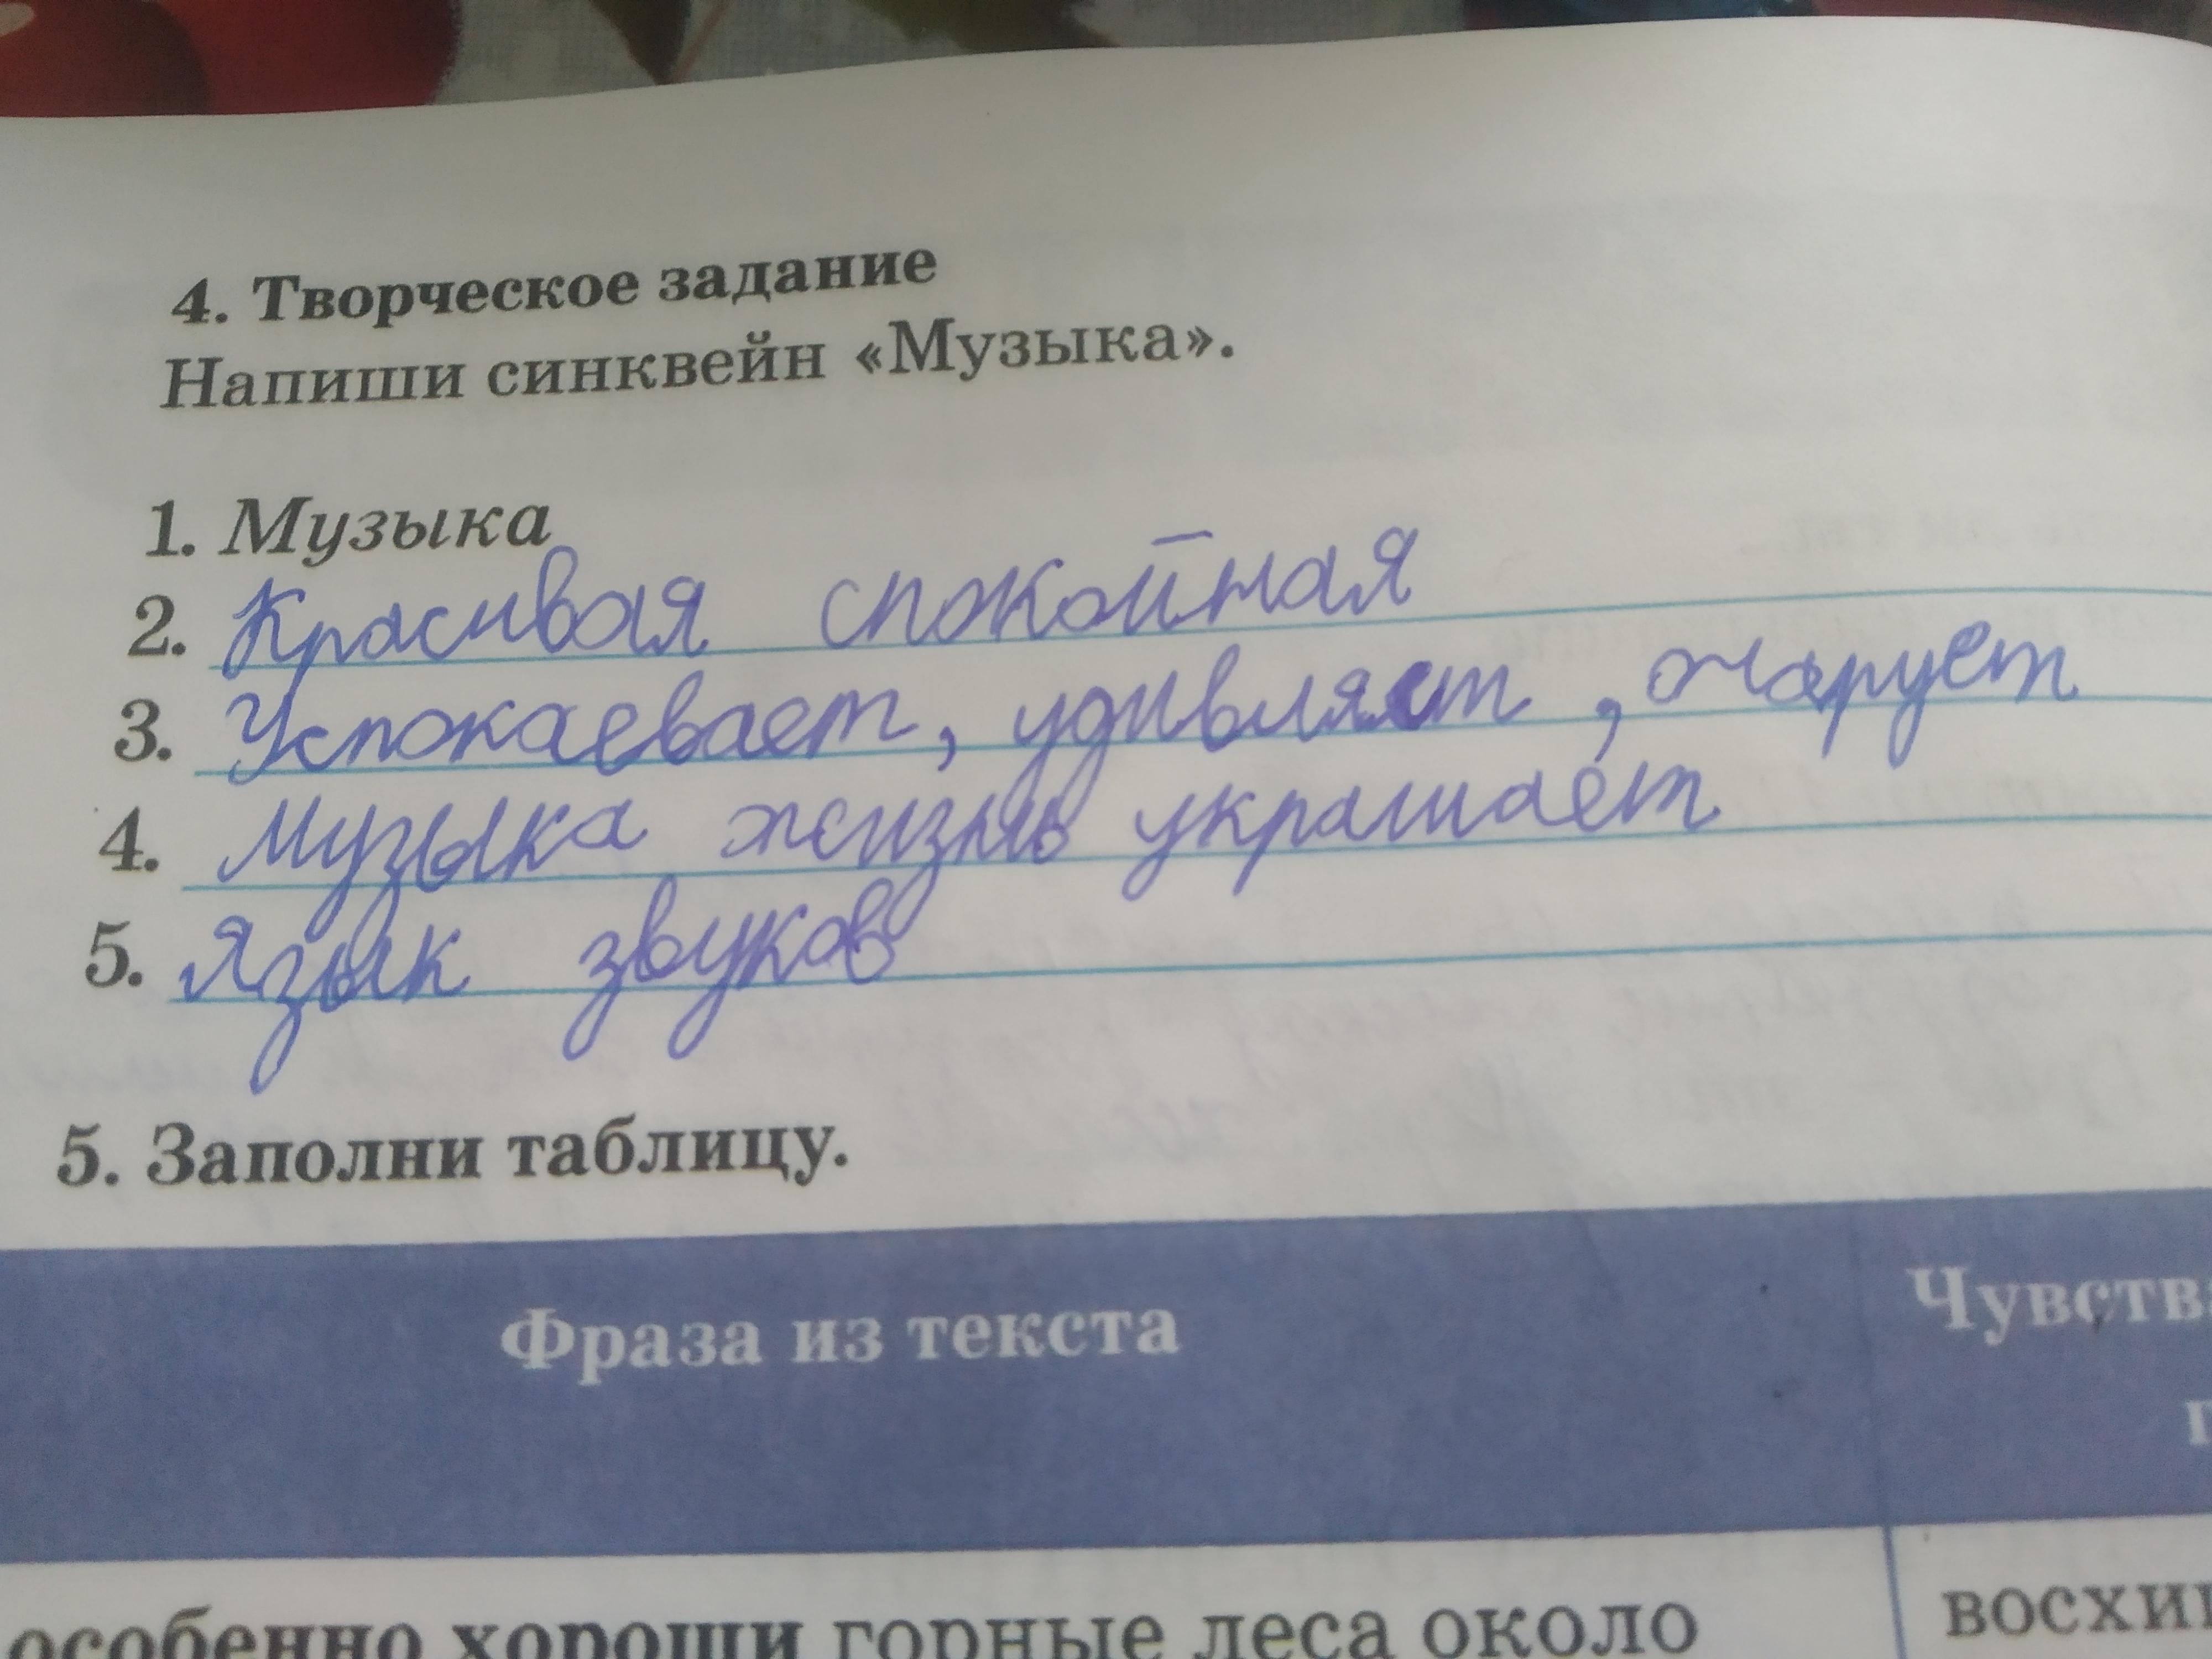 4. Творческое задание
Напиши синквейн «Музыка».
1. Музыка
2. Красивая спокойная
3. Успокаевает, удивляет, очарует
4. Музыка жизнь украшает
5. Язык звуков
5. Заполни таблицу.
Фраза из текста
Чувств
особенно хороши горные леса около
восхи